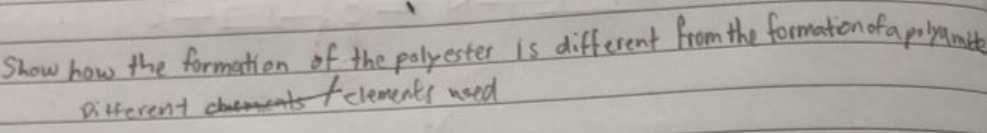 Show how the formation of the polyester is different from the formation of a polyamide
Different elements used